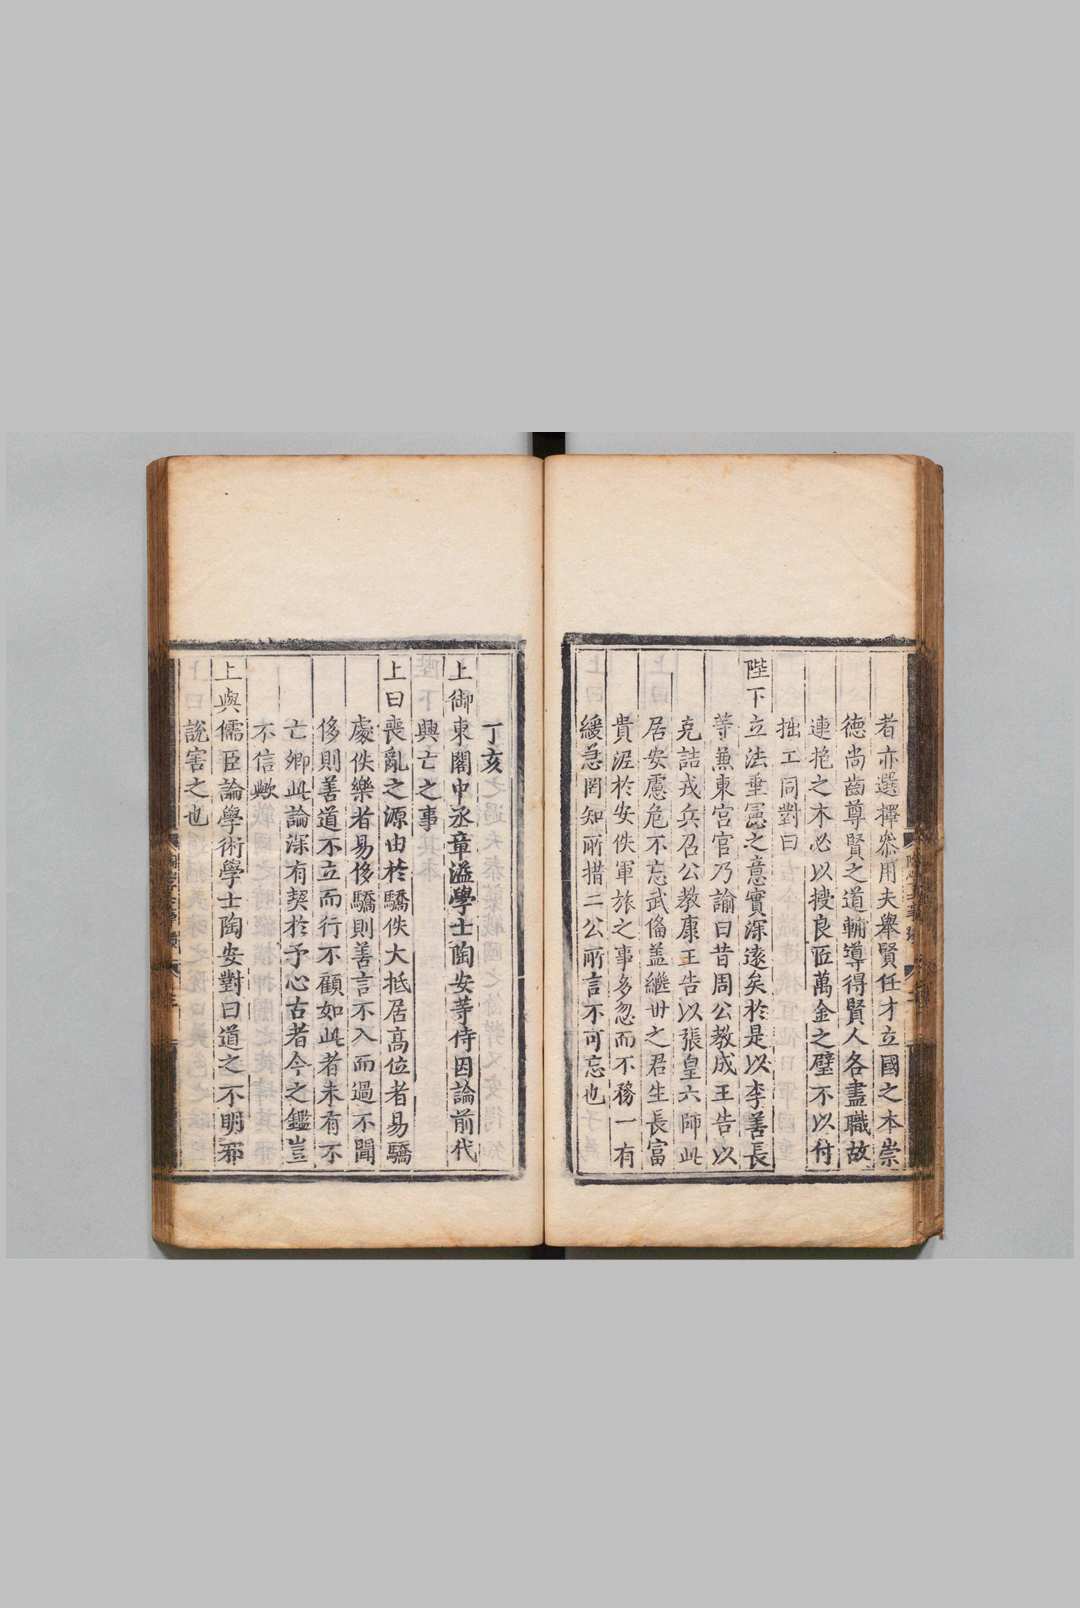 者亦選擇叅用夫舉賢任才立國之本崇
德尚齒尊賢之道輔導得賢人各盡職故
連抱之木必以授良匠萬金之璧不以付
拙工同對曰
陛下立法垂憲之意實深遠矣於是以李善長
等兼東宮官乃諭曰昔周公教成王告以
克詰戎兵召公教康王告以張皇六師此
居安慮危不忘武俻盖繼丗之君生長富
貴涇於安佚軍旅之事多忽而不務一有
緩急罔知所措二公所言不可忘也
丁亥
上御東閣中丞章溢學士陶安等侍因論前代
興亡之事
上曰喪亂之源由於驕佚大抵居高位者易驕
處佚樂者易侈驕則善言不入而過不聞
侈則善道不立而行不顧如此者未有不
亡卿此論深有契於予心古者今之鑑豈
不信歟
上與儒臣論學術學士陶安對曰道之不明邪
說害之也